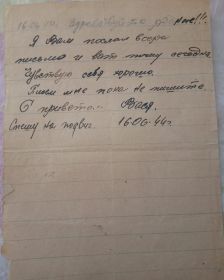 Здравствуйте
Я Вам послал вчера
письмо и вот пишу сегодня
Чувствую себя хорошо.
Письма мне пока не пишите.
С приветом Вася.
Спешу на подвиг. 16.06.44г.